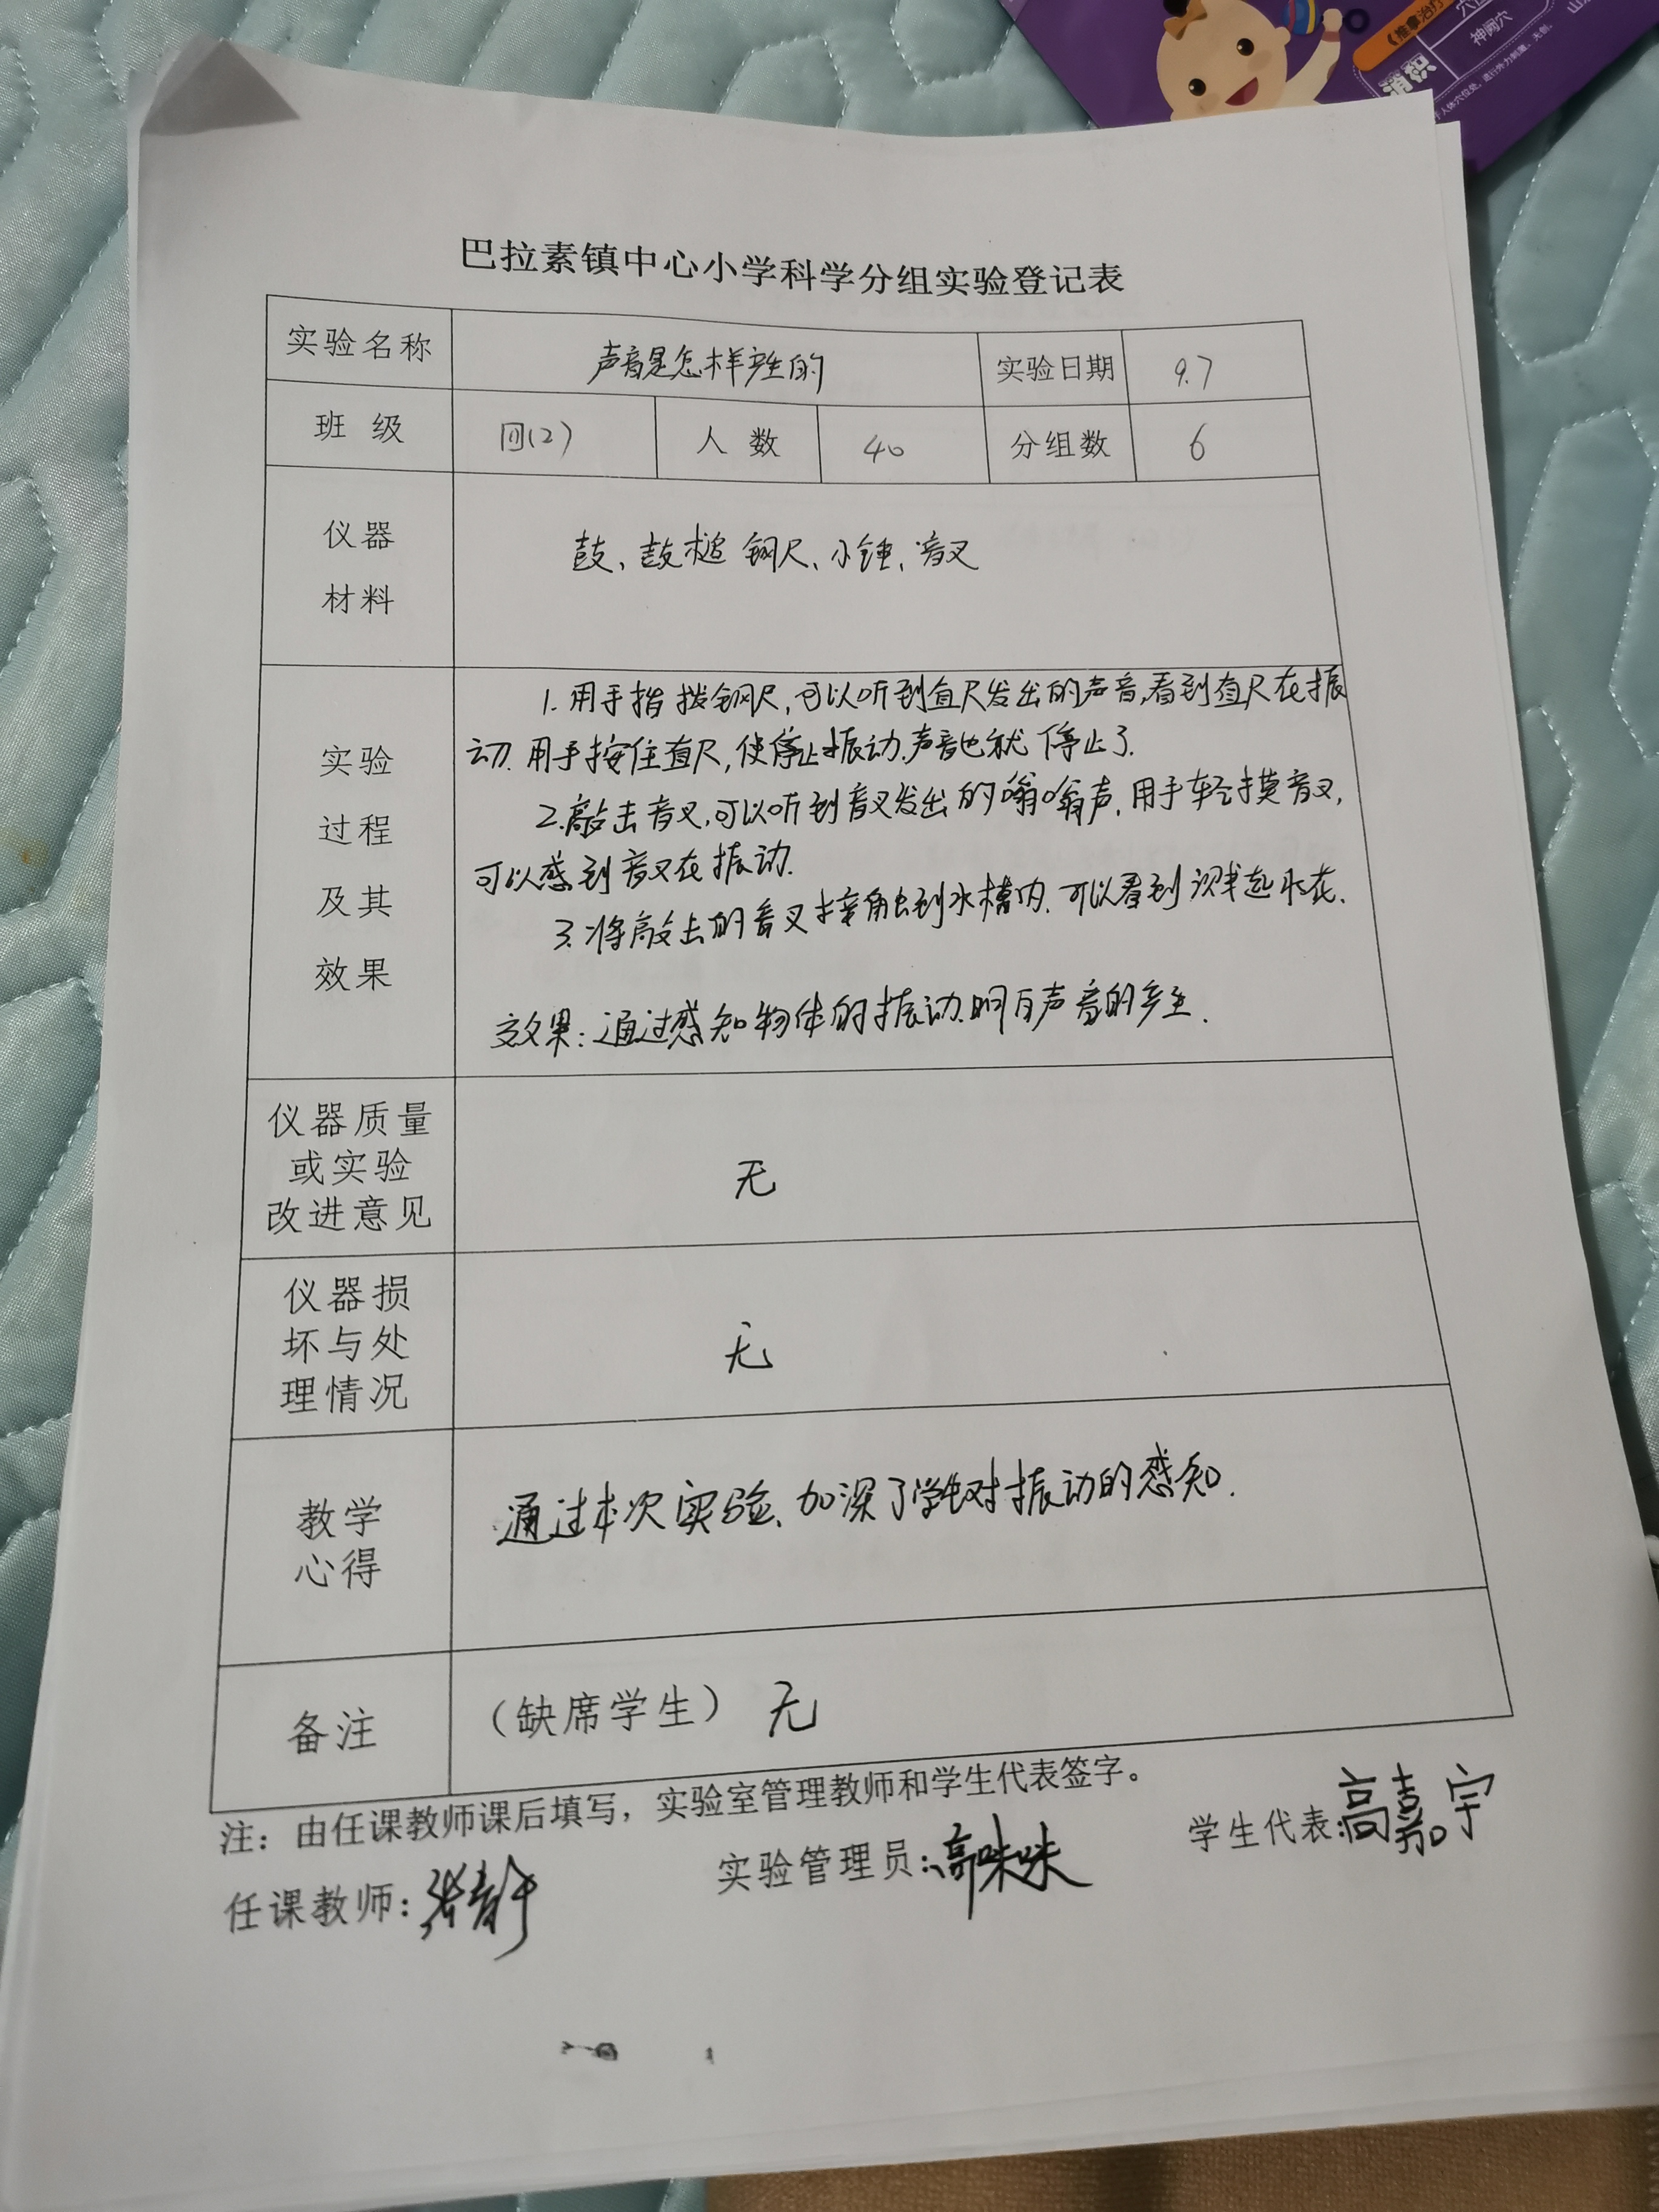 《推拿治疗
神阙穴
消积
巴拉素镇中心小学科学分组实验登记表
实验名称 声音是怎样产生的 实验日期 9.7
班 级 四(2) 人 数 40 分组数 6
仪器
材料
鼓、鼓槌 钢尺、小锤、音叉
实验
过程
及其
效果
1. 用手指拨钢尺,可以听到直尺发出的声音,看到直尺在振
动. 用手按住直尺,使停止振动.声音也就停止了.
2.敲击音叉,可以听到音叉发出的嗡嗡声.用手轻摸音叉,
可以感到音叉在振动.
3.将敲击的音叉接触到水槽内.可以看到溅起水花.
效果:通过感知物体的振动.明白声音的产生.
仪器质量
或实验
改进意见
无
仪器损
坏与处
理情况
无
教学
心得
通过本次实验、加深了学生对振动的感知.
备注 (缺席学生) 无
注：由任课教师课后填写，实验室管理教师和学生代表签字。
任课教师:张静 实验管理员:高咪咪 学生代表:高嘉宇